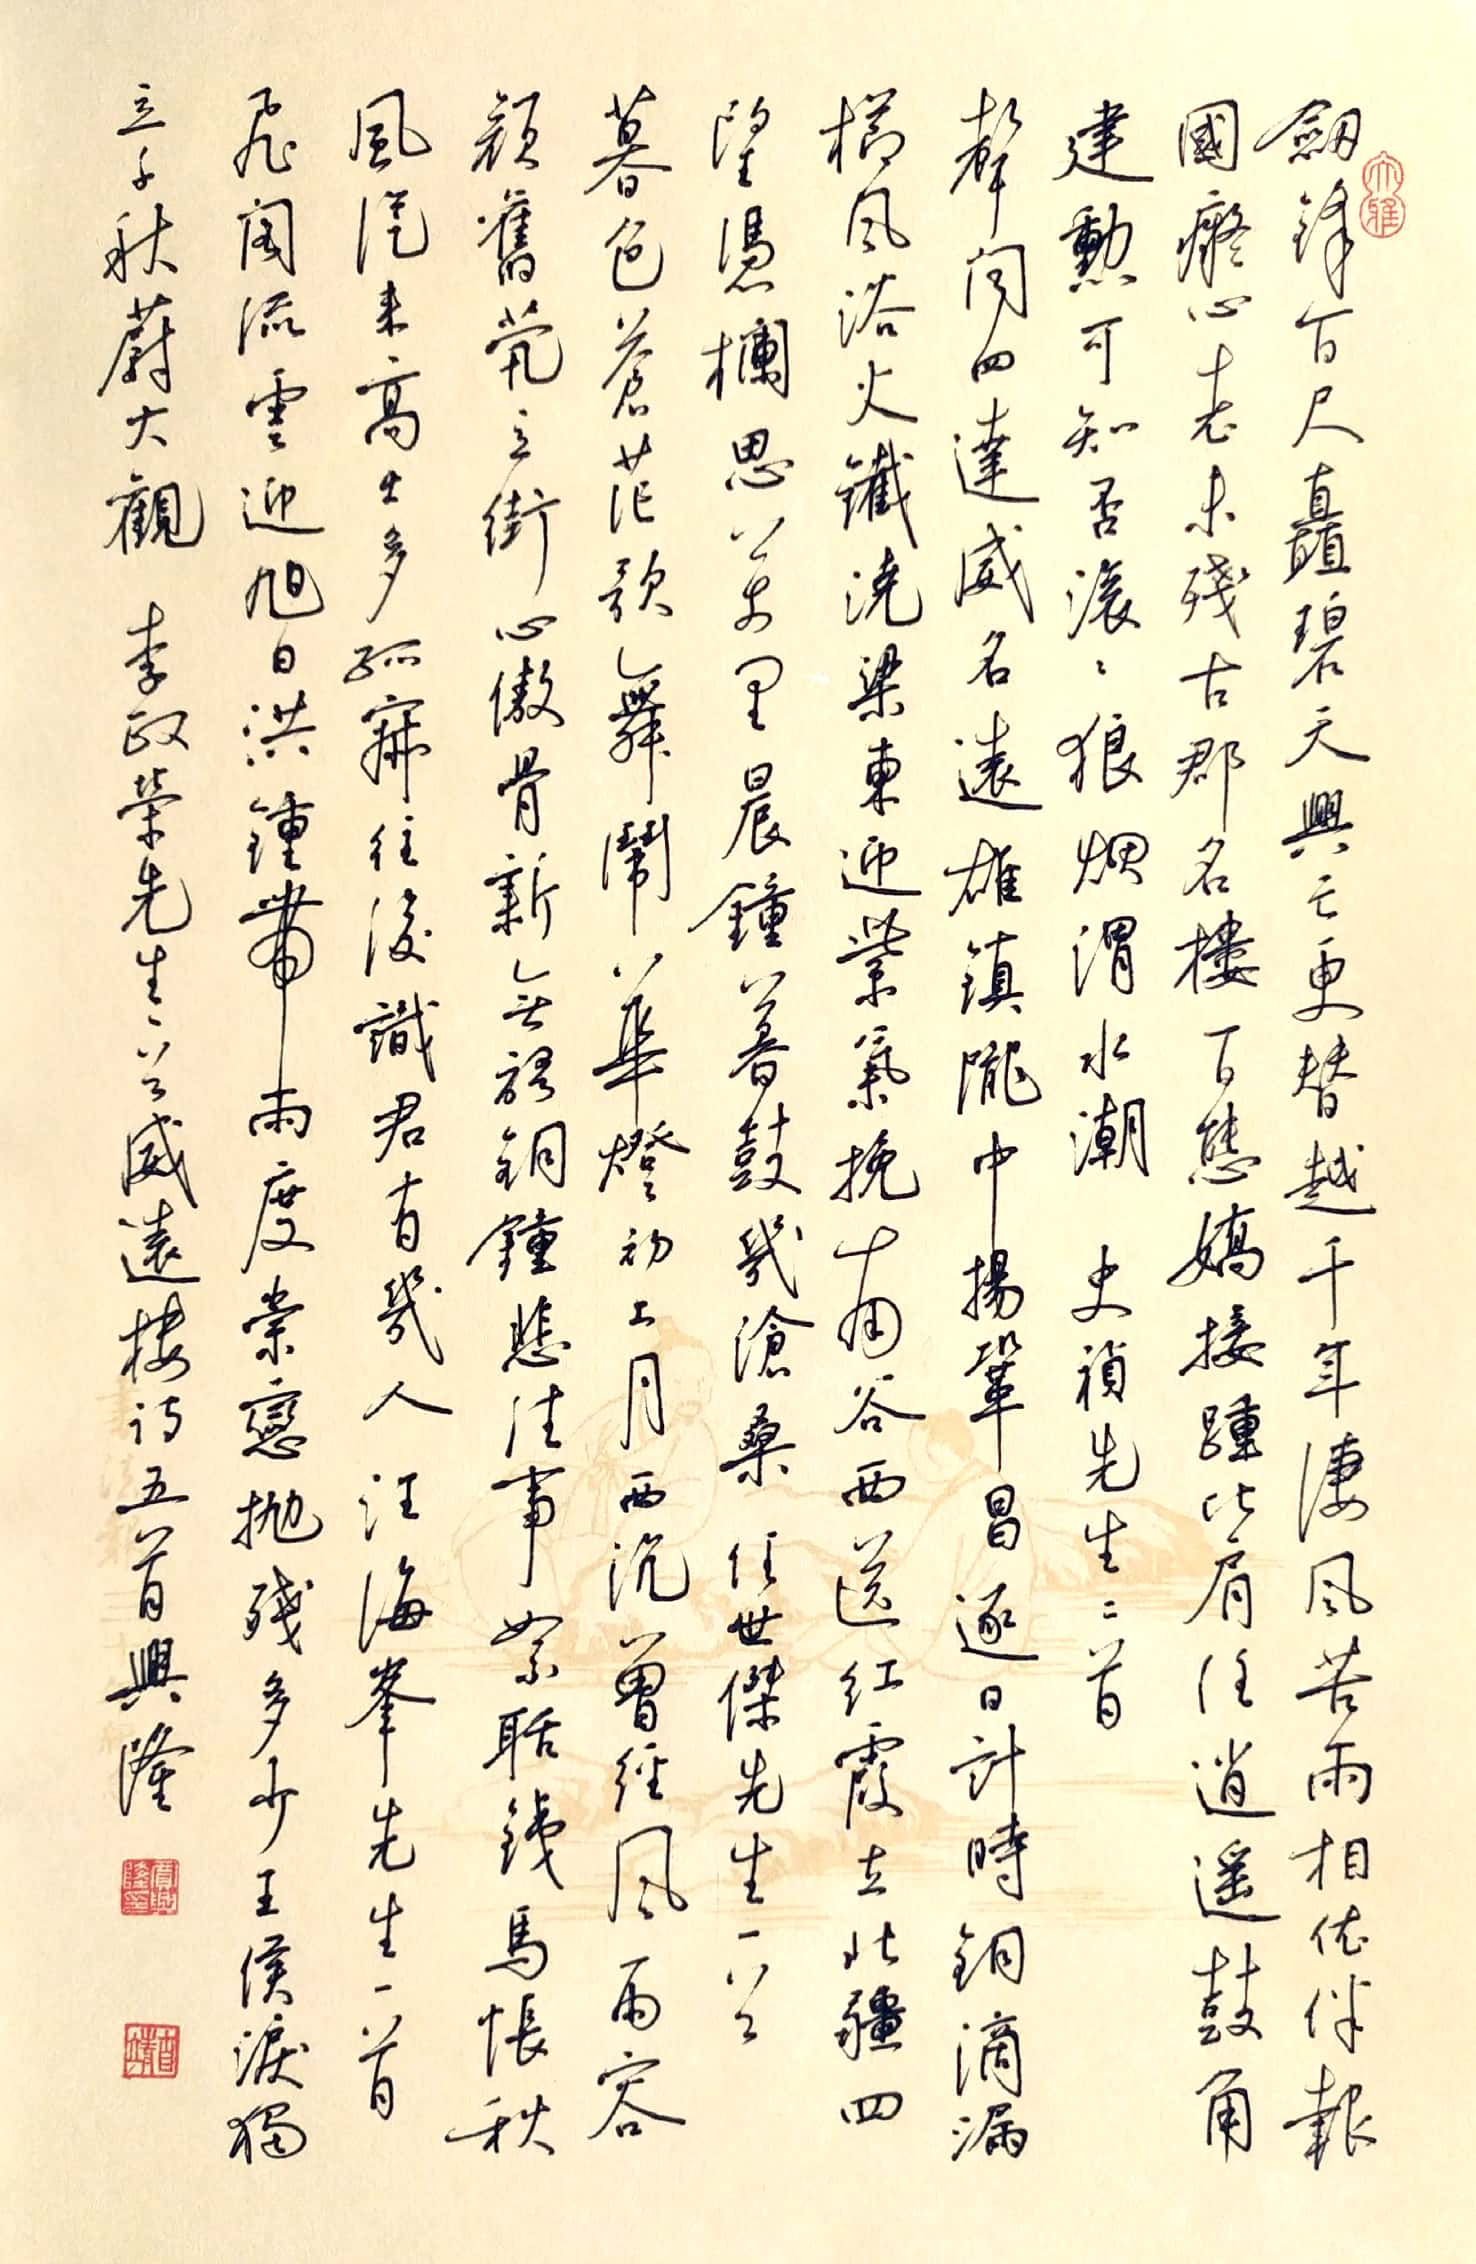 劍鋒百尺矗碧天興亡更替越千年淒風苦雨相依伴報
國癡心志未殘古郡名樓百態嬌接踵比肩任逍遙鼓角
建勳可知否滾滾狼煙渭水潮 史禎先生二首
聲聞四達威名遠雄鎮隴中揚鞏昌逐日計時銅滴漏
櫛風浴火鐵澆梁東迎紫氣挽南谷西送紅霞立北疆四
望憑欄思萬里晨鐘暮鼓幾滄桑 任世傑先生一首
暮色蒼茫歌舞鬧華燈初上月西沉曾經風雨容
顏舊煢立街心傲骨新無語銅鐘悲往事縈聒鐵馬悵秋
風從來高士多孤寂往後識君有幾人 汪海峯先生一首
飛閣流雲迎旭日洪鐘帶雨度崇巒拋殘多少王侯淚獨
立千秋蔚大觀 李政榮先生一首威遠樓詩五首興隆
大雅